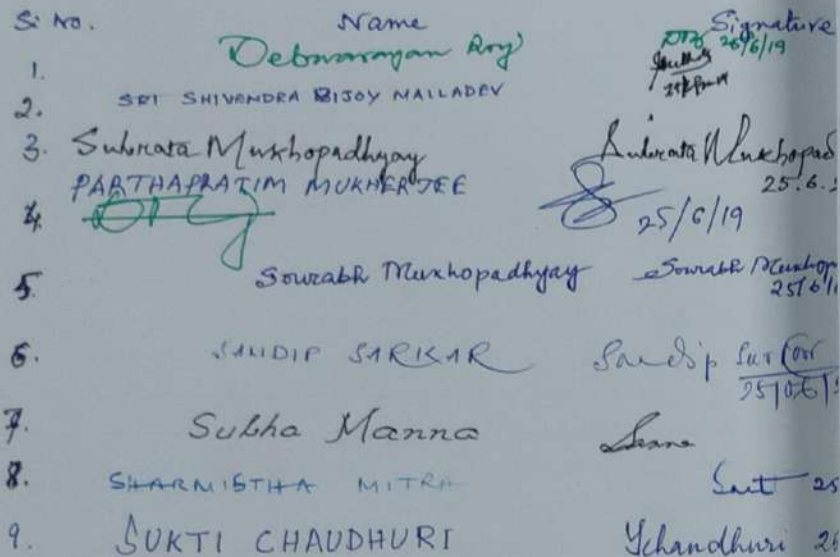 Sl No. Name Signature
1. Debnarayan Roy 25/6/19
2. SRI SHIVENDRA BIJOY MALLADEV
3. Subrata Mukhopadhyay Subrata Mukhopad
25.6.
4. PARTHAPRATIM MUKHERJEE 25/6/19
5. Sourabh Mukhopadhyay Sourabh Mukhop
25/6/1
6. SANDIP SARKAR Sandip Sarkar
25/06/1
7. Subha Manna
8. SHARMISTHA MITRA 25
9. SUKTI CHAUDHURI Schaudhuri 2